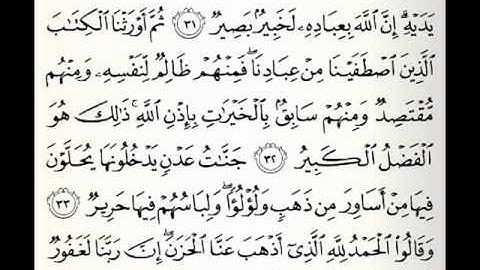 يَدَيْهِ ۗ إِنَّ ٱللَّهَ بِعِبَادِهِۦ لَخَبِيرٌۢ بَصِيرٌ ٣١ ثُمَّ أَوْرَثْنَا ٱلْكِتَٰبَ
ٱلَّذِينَ ٱصْطَفَيْنَا مِنْ عِبَادِنَا ۖ فَمِنْهُمْ ظَالِمٌ لِّنَفْسِهِۦ وَمِنْهُم
مُّقْتَصِدٌ وَمِنْهُمْ سَابِقٌۢ بِٱلْخَيْرَٰتِ بِإِذْنِ ٱللَّهِ ۚ ذَٰلِكَ هُوَ
ٱلْفَضْلُ ٱلْكَبِيرُ ٣٢ جَنَّٰتُ عَدْنٍ يَدْخُلُونَهَا يُحَلَّوْنَ
فِيهَا مِنْ أَسَاوِرَ مِن ذَهَبٍ وَلُؤْلُؤًا ۖ وَلِبَاسُهُمْ فِيهَا حَرِيرٌ ٣٣
وَقَالُوا۟ ٱلْحَمْدُ لِلَّهِ ٱلَّذِىٓ أَذْهَبَ عَنَّا ٱلْحَزَنَ ۖ إِنَّ رَبَّنَا لَغَفُورٌ